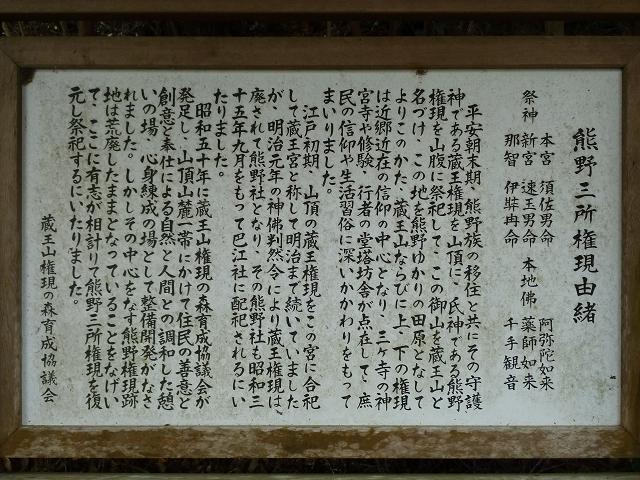 熊野三所権現由緒
祭神 本宮 須佐男命 本地佛 阿弥陀如来
新宮 速玉男命 薬師如来
那智 伊弉冉命 千手観音
平安朝末期、熊野族の移住と共にその守護
神である蔵王権現を山頂に、氏神である熊野
権現を山腹に祭祀して、この御山を蔵王山と
名づけ、この地を熊野ゆかりの田原となして
よりこのかた、蔵王山ならびに上、下の権現
は近郷近在の信仰の中心となり、三ヶ寺の神
宮寺や修験、行者の堂塔坊舎が点在して、庶
民の信仰や生活習俗に深いかかわりをもって
まいりました。
江戸初期、山頂の蔵王権現をこの宮に合祀
して蔵王宮と称して明治まで続いていました
が、明治元年の神佛判然令により蔵王権現は、
廃されて熊野社となり、その熊野社も昭和三
十五年九月をもって巴江社に配祀されるにい
たりました。
昭和五十年に蔵王山権現の森育成協議会が
発足し、山頂山麓一帯にかけて住民の善意と
創意と奉仕による自然と人間との調和した憩
いの場、心身錬成の場として整備開発がなさ
れました。しかしその中心をなす熊野権現跡
地は荒廃したままとなっていることをなげい
て、ここに有志が相計りて熊野三所権現を復
元し祭祀するにいたりました。
蔵王山権現の森育成協議会